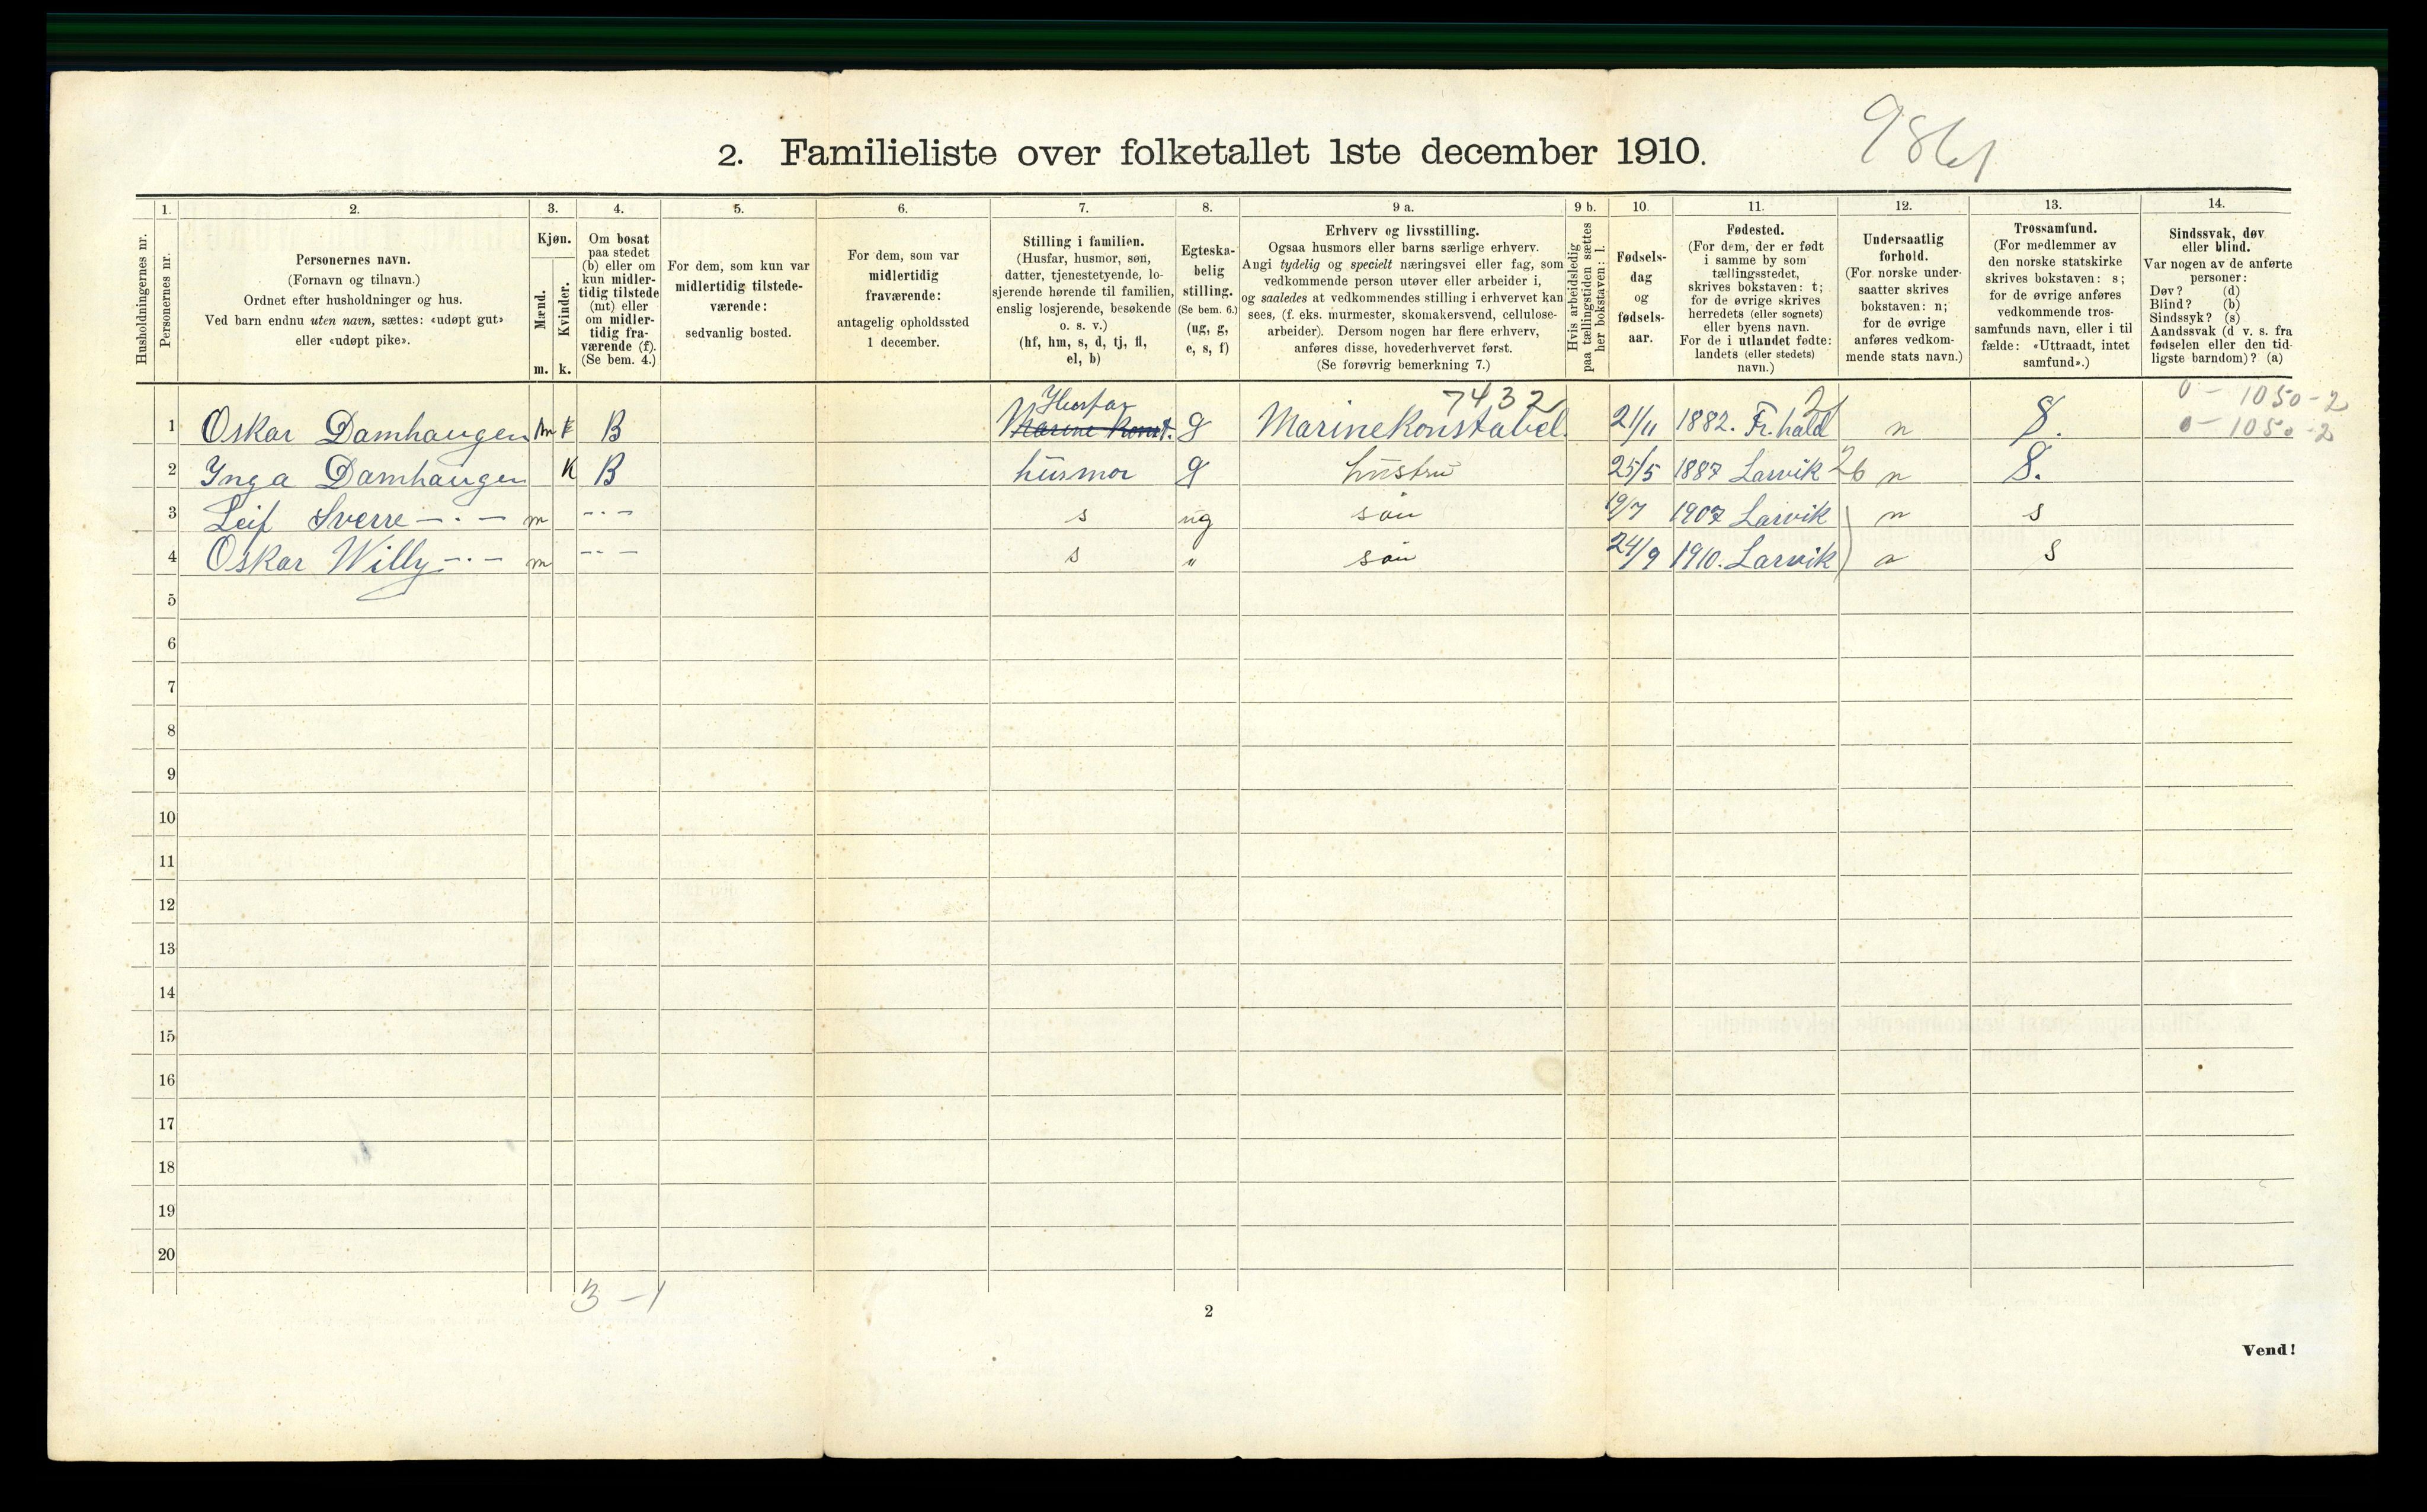 2. Familieliste over folketallet 1ste december 1910.
9861
Husholdningernes nr.
1.
Personernes nr.
2.
Personernes navn.
(Fornavn og tilnavn.)
Ordnet efter husholdninger og hus.
Ved barn endnu uten navn, sættes: «udøpt gut»
eller «udøpt pike».
3.
Kjøn.
Mænd.
m.
Kvinder.
k.
4.
Om bosat
paa stedet
(b) eller om
kun midler-
tidig tilstede
(mt) eller
om midler-
tidig fra-
værende (f).
(Se bem. 4.)
5.
For dem, som kun var
midlertidig tilstede-
værende:
sedvanlig bosted.
6.
For dem, som var
midlertidig
fraværende:
antagelig opholdssted
1 december.
7.
Stilling i familien.
(Husfar, husmor, søn,
datter, tjenestetyende, lo-
sjerende hørende til familien,
enslig losjerende, besøkende
o. s. v.)
(hf, hm, s, d, tj, fl,
el, b)
8.
Egteska-
belig
stilling.
(Se bem. 6.)
(ug, g,
e, s, f)
9 a.
Erhverv og livsstilling.
Ogsaa husmors eller barns særlige erhverv.
Angi tydelig og specielt næringsvei eller fag, som
vedkommende person utøver eller arbeider i,
og saaledes at vedkommendes stilling i erhvervet kan
sees, (f. eks. murmester, skomakersvend, cellulose-
arbeider). Dersom nogen har flere erhverv,
anføres disse, hovederhvervet først.
(Se forøvrig bemerkning 7.)
9 b.
Hvis arbeidsledig
paa tællingstiden sættes
her bokstaven: l.
10.
Fødsels-
dag
og
fødsels-
aar.
11.
Fødested.
(For dem, der er født
i samme by som
tællingsstedet,
skrives bokstaven: t;
for de øvrige skrives
herredets (eller sognets)
eller byens navn.
For de i utlandet fødte:
landets (eller stedets)
navn.)
12.
Undersaatlig
forhold.
(For norske under-
saatter skrives
bokstaven: n;
for de øvrige
anføres vedkom-
mende stats navn.)
13.
Trossamfund.
(For medlemmer av
den norske statskirke
skrives bokstaven: s;
for de øvrige anføres
vedkommende tros-
samfunds navn, eller i til
fælde: «Uttraadt, intet
samfund».)
14.
Sindssvak, døv
eller blind.
Var nogen av de anførte
personer:
Døv? (d)
Blind? (b)
Sindssyk? (s)
Aandssvak (d v. s. fra
fødselen eller den tid-
ligste barndom)? (a)
Husfar 7432 0 - 1050-2
1 Oskar Damhaugen m k B Marine Konst. g Marinekonstabel. 21/11 1882. Fr.hald n S. 0 - 1050-2
2 Inga Damhaugen K B husmor g hustru 25/5 1887 Larvik 26 n S.
3 Leif Sverre -.- m -.- s ug søn 19/7 1907 Larvik n s
4 Oskar Willy -.- m -.- s " søn 24/9 1910. Larvik n s
5
6
7
8
9
10
11
12
13
14
15
16
17
18
19
20
3 - 1
2
Vend!